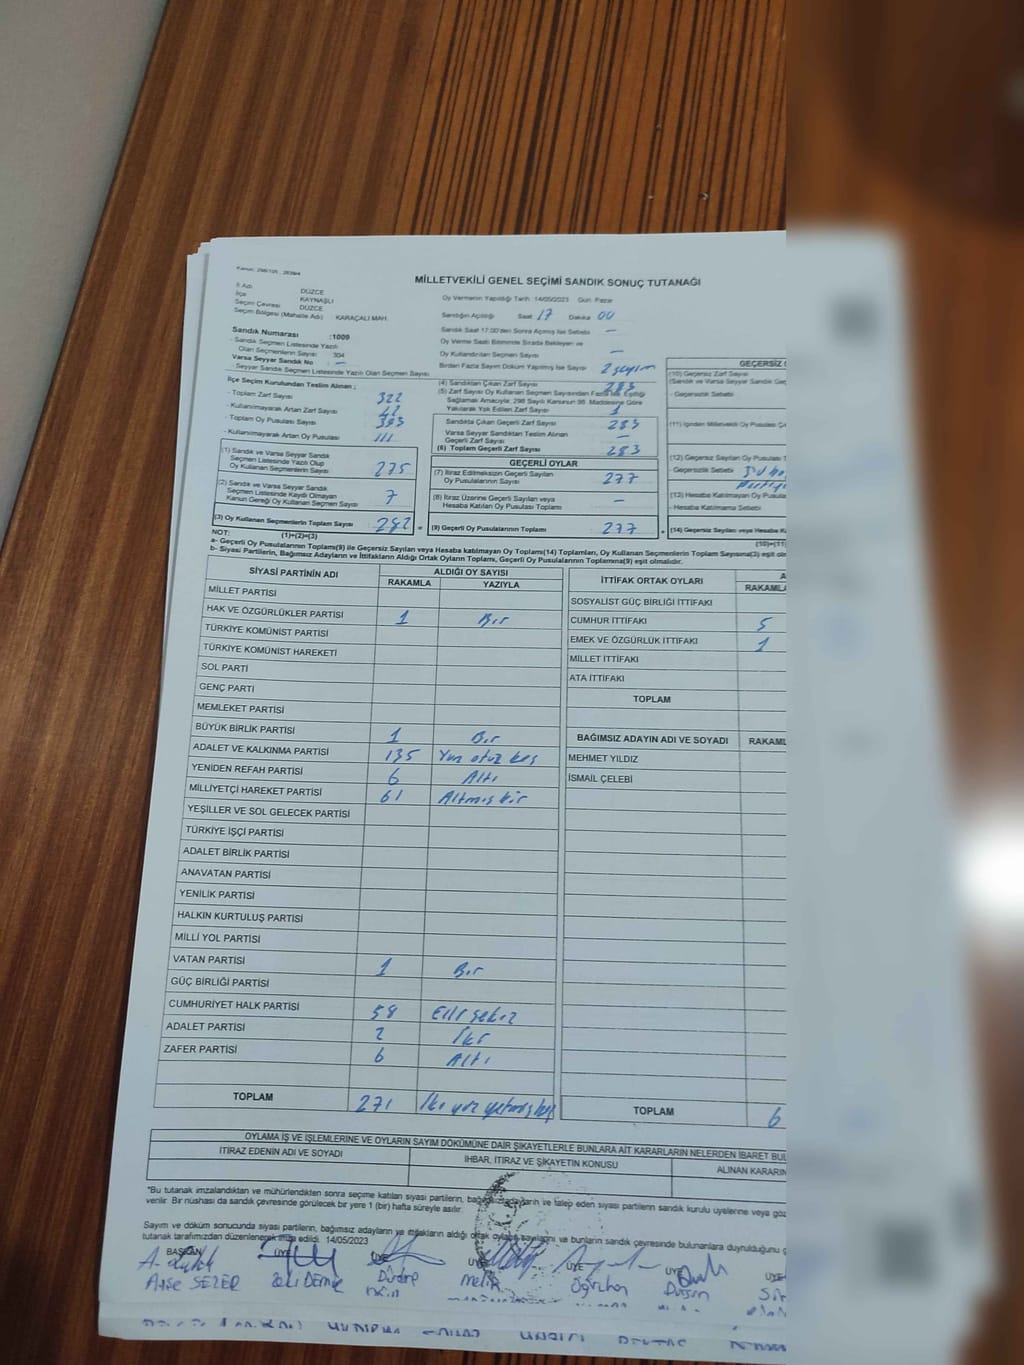 Kanun: 298/105 , 2839/4
MİLLETVEKİLİ GENEL SEÇİMİ SANDIK SONUÇ TUTANAĞI
İl Adı DÜZCE
İlçe KAYNAŞLI
Seçim Çevresi DÜZCE
Seçim Bölgesi (Mahalle Adı) : KARAÇALI MAH.
Oy Vermenin Yapıldığı Tarih: 14/05/2023 Gün: Pazar
Sandığın Açıldığı Saat 17 Dakika 00
Sandık Saat 17:00'den Sonra Açılmış İse Sebebi —
Oy Verme Saati Bitiminde Sırada Bekleyen ve
Oy Kullandırılan Seçmen Sayısı —
Birden Fazla Sayım Döküm Yapılmış İse Sayısı 2 sayım
Sandık Numarası :1009
- Sandık Seçmen Listesinde Yazılı
Olan Seçmenlerin Sayısı 304
Varsa Seyyar Sandık No —
- Seyyar Sandık Seçmen Listesinde Yazılı Olan Seçmen Sayısı
İlçe Seçim Kurulundan Teslim Alınan ;
- Toplam Zarf Sayısı 322
- Kullanılmayarak Artan Zarf Sayısı
- Toplam Oy Pusulası Sayısı 393
- Kullanılmayarak Artan Oy Pusulası 111
(1) Sandık ve Varsa Seyyar Sandık
Seçmen Listesinde Yazılı Olup
Oy Kullanan Seçmenlerin Sayısı 275
(2) Sandık ve Varsa Seyyar Sandık
Seçmen Listesinde Kaydı Olmayan
Kanun Gereği Oy Kullanan Seçmen Sayısı 7
(3) Oy Kullanan Seçmenlerin Toplam Sayısı 282 =
(1)+(2)=(3)
(4) Sandıktan Çıkan Zarf Sayısı 283
(5) Zarf Sayısı Oy Kullanan Seçmen Sayısından Fazla İse, Eşitliği
Sağlamak Amacıyla, 298 Sayılı Kanunun 98. Maddesine Göre
Yakılarak Yok Edilen Zarf Sayısı 1
Sandıkta Çıkan Geçerli Zarf Sayısı 283
Varsa Seyyar Sandıktan Teslim Alınan
Geçerli Zarf Sayısı —
(6) Toplam Geçerli Zarf Sayısı 283
GEÇERLİ OYLAR
(7) İtiraz Edilmeksizin Geçerli Sayılan
Oy Pusulalarının Sayısı 277
(8) İtiraz Üzerine Geçerli Sayılan veya
Hesaba Katılan Oy Pusulası Toplamı —
(9) Geçerli Oy Pusulalarının Toplamı 277 +
GEÇERSİZ
(10) Geçersiz Zarf Sayısı
(Sandık ve Varsa Seyyar Sandık
- Geçersizlik Sebebi
(11) İçinden Milletvekili Oy Pusulası
(12) Geçersiz Sayılan Oy Pusulası
- Geçersizlik Sebebi
(13) Hesaba Katılmayan Oy
- Hesaba Katılmama Sebebi
(14) Geçersiz Sayılan veya Hesaba
NOT:
a- Geçerli Oy Pusulalarının Toplamı(9) ile Geçersiz Sayılan veya Hesaba katılmayan Oy Toplamı(14) Toplamları, Oy Kullanan Seçmenlerin Toplam Sayısına(3) eşit
b- Siyasi Partilerin, Bağımsız Adayların ve İttifakların Aldığı Ortak Oyların Toplamı, Geçerli Oy Pusulalarının Toplamına(9) eşit olmalıdır.
SİYASİ PARTİNİN ADI ALDIĞI OY SAYISI
RAKAMLA YAZIYLA
MİLLET PARTİSİ
HAK VE ÖZGÜRLÜKLER PARTİSİ 1 Bir
TÜRKİYE KOMÜNİST PARTİSİ
TÜRKİYE KOMÜNİST HAREKETİ
SOL PARTİ
GENÇ PARTİ
MEMLEKET PARTİSİ
BÜYÜK BİRLİK PARTİSİ 1 Bir
ADALET VE KALKINMA PARTİSİ 135 Yüz otuz beş
YENİDEN REFAH PARTİSİ 6 Altı
MİLLİYETÇİ HAREKET PARTİSİ 61 Altmış bir
YEŞİLLER VE SOL GELECEK PARTİSİ
TÜRKİYE İŞÇİ PARTİSİ
ADALET BİRLİK PARTİSİ
ANAVATAN PARTİSİ
YENİLİK PARTİSİ
HALKIN KURTULUŞ PARTİSİ
MİLLİ YOL PARTİSİ
VATAN PARTİSİ 1 Bir
GÜÇ BİRLİĞİ PARTİSİ
CUMHURİYET HALK PARTİSİ 58 Elli sekiz
ADALET PARTİSİ 2 İki
ZAFER PARTİSİ 6 Altı
TOPLAM 271 İki yüz yetmiş
İTTİFAK ORTAK OYLARI
RAKAMLA
SOSYALİST GÜÇ BİRLİĞİ İTTİFAKI
CUMHUR İTTİFAKI 5
EMEK VE ÖZGÜRLÜK İTTİFAKI 1
MİLLET İTTİFAKI
ATA İTTİFAKI
TOPLAM
BAĞIMSIZ ADAYIN ADI VE SOYADI RAKAML
MEHMET YILDIZ
İSMAİL ÇELEBİ
TOPLAM 6
OYLAMA İŞ VE İŞLEMLERİNE VE OYLARIN SAYIM DÖKÜMÜNE DAİR ŞİKAYETLERLE BUNLARA AİT KARARLARIN NELERDEN İBARET BUL
İTİRAZ EDENİN ADI VE SOYADI İHBAR, İTİRAZ VE ŞİKAYETİN KONUSU ALINAN KARARIN
*Bu tutanak imzalandıktan ve mühürlendikten sonra seçime katılan siyasi partilerin, bağımsız adayların ve talep eden siyasi partilerin sandık kurulu üyelerine veya
verilir. Bir nüshası da sandık çevresinde görülecek bir yere 1 (bir) hafta süreyle asılır.
Sayım ve döküm sonucunda siyasi partilerin, bağımsız adayların ve ittifakların aldığı ortak oyların sayılarını ve bunların sandık çevresinde bulunanlara duyrulduğunu
tutanak tarafımızdan düzenlenerek imza edildi. 14/05/2023
BAŞKAN ÜYE ÜYE ÜYE ÜYE ÜYE ÜYE
Ayşe SEZER